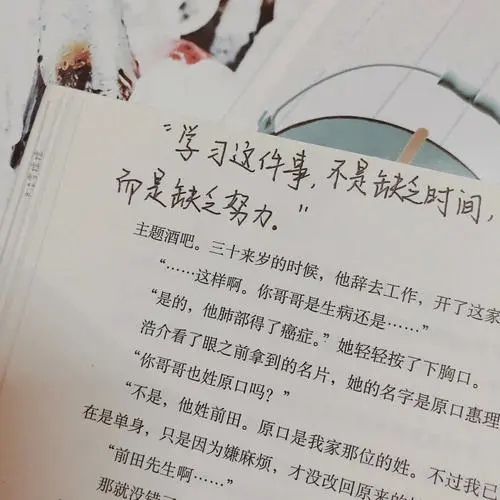 “学习这件事,不是缺乏时间,
而是缺乏努力。”
主题酒吧。三十来岁的时候,他辞去工作,开了这家
“……这样啊。你哥哥是生病还是……”
“是的,他肺部得了癌症。”她轻轻按了下胸口。
浩介看了眼之前拿到的名片,她的名字是原口惠理
“你哥哥也姓原口吗?”
“不是,他姓前田。原口是我家那位的姓。不过我已
在是单身,只是因为嫌麻烦,才没改回原来的
“前田先生啊……”
那就没错了